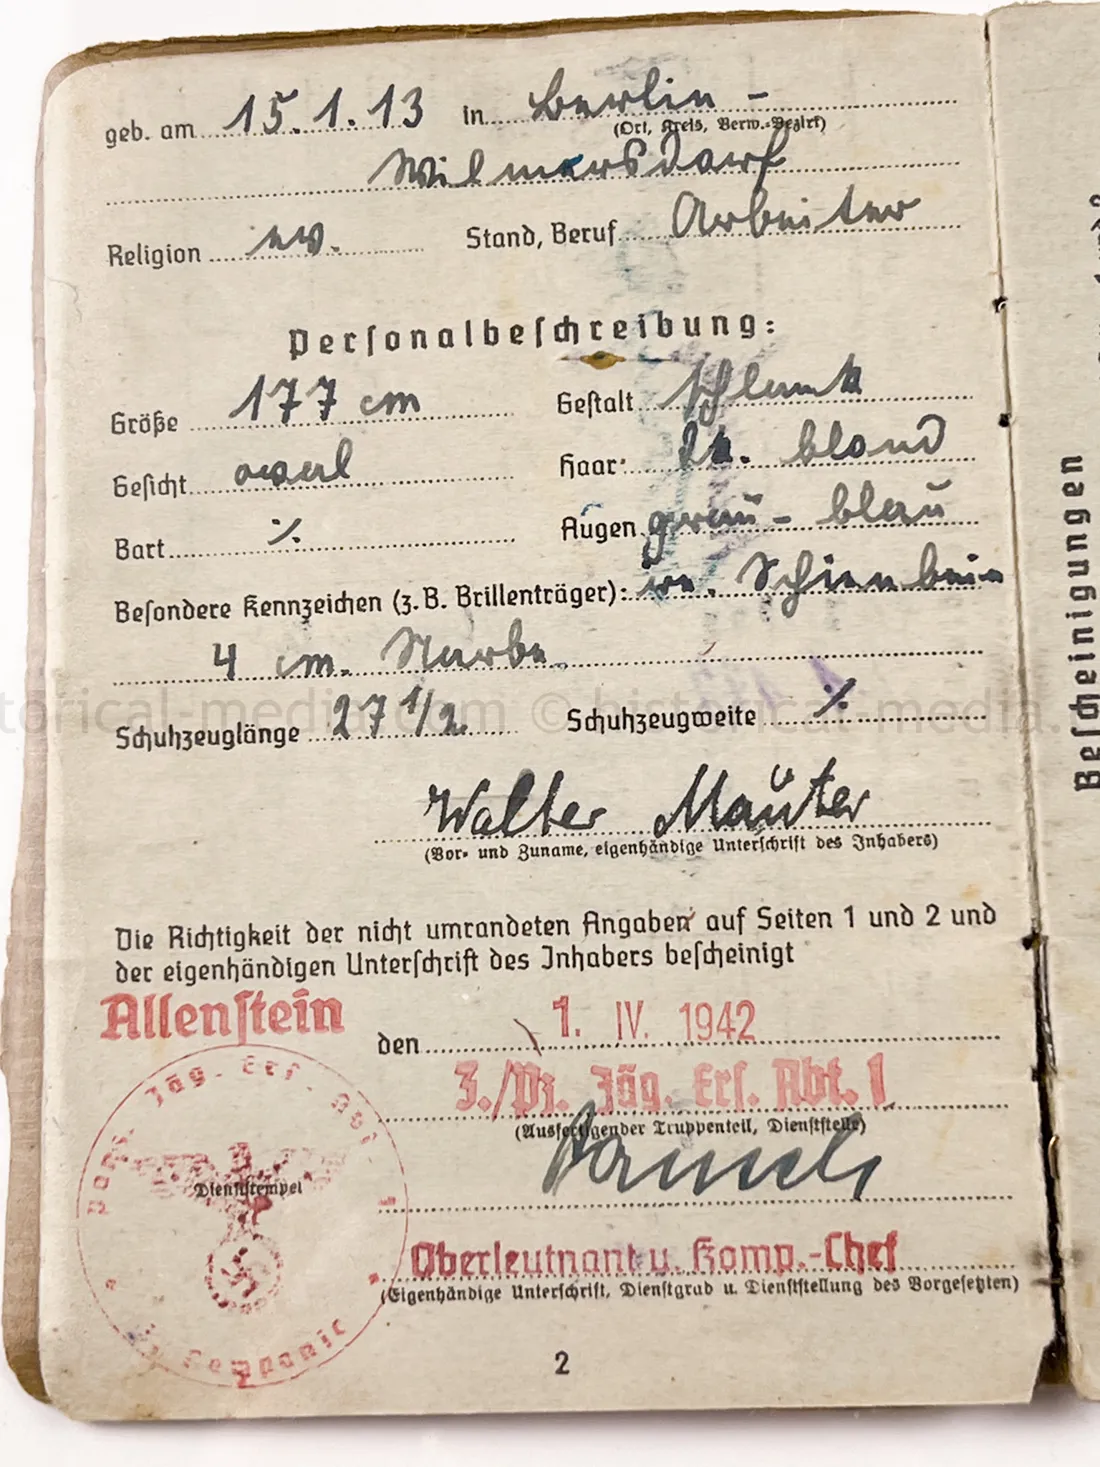 geb. am 15.1.13 in Berlin -
(Ort, Kreis, Verw.-Bezirk)
Wilmersdorf
Religion ev. Stand, Beruf Arbeiter
Personalbeschreibung:
Größe 177 cm Gestalt schlank
Gesicht oval Haar dk. blond
Bart ·/. Augen grau - blau
Besondere Kennzeichen (z. B. Brillenträger): Schienbein
4 cm. Narbe
historical-media.com © historical-media.
Schuhzeuglänge 27 1/2 Schuhzeugweite ·/.
Walter Mauter
(Vor- und Zuname, eigenhändige Unterschrift des Inhabers)
Die Richtigkeit der nicht umrandeten Angaben auf Seiten 1 und 2 und
der eigenhändigen Unterschrift des Inhabers bescheinigt
Allenstein
den 1. IV. 1942
3./Pz. Jäg. Ers. Abt. 1
(Ausfertigender Truppenteil, Dienststelle)
Oberleutnant u. Komp.-Chef
(Eigenhändige Unterschrift, Dienstgrad u. Dienststellung des Vorgesetzten)
Panz. Jäg. Ers. Abt. 1
Dienststempel
Kompanie
2
Bescheinigungen